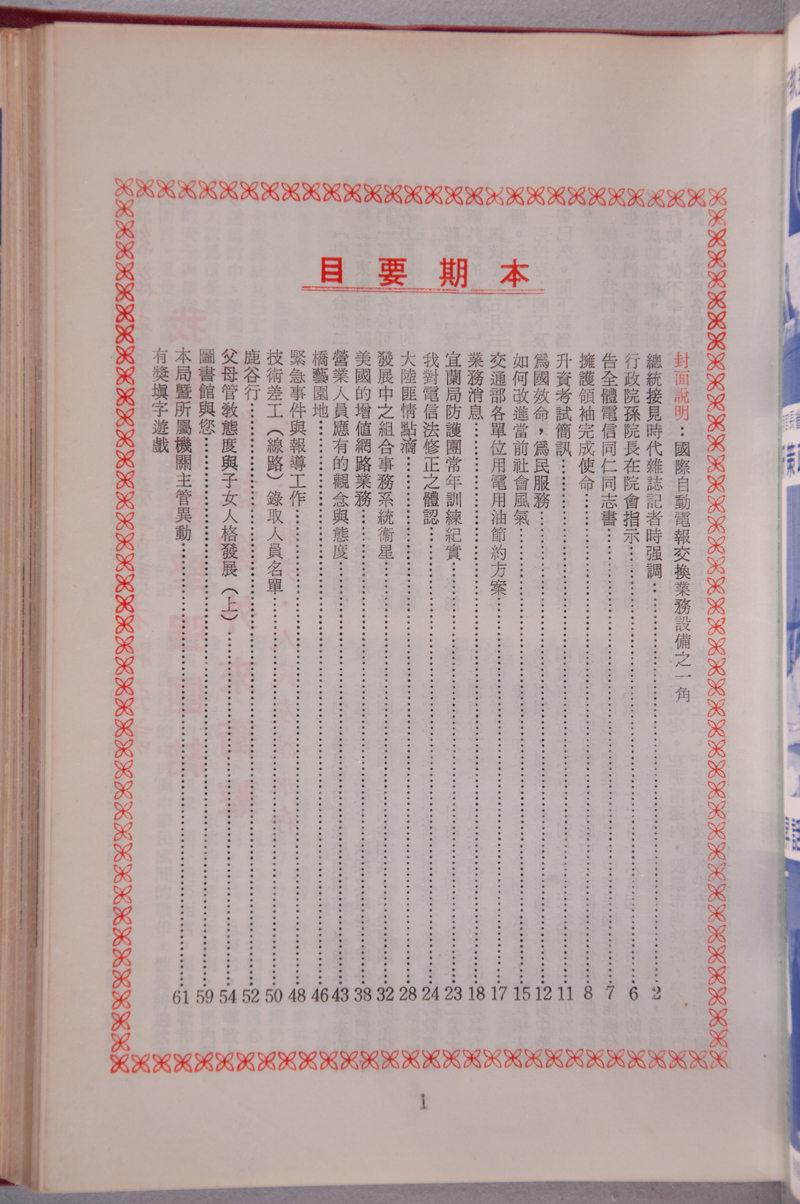 本期要目
封面說明：國際自動電報交換業務設備之一角
總統接見時代雜誌記者時强調：……2
行政院孫院長在院會指示……6
告全體電信同仁同志書……7
擁護領袖完成使命……8
升資考試簡訊……11
爲國效命，爲民服務……12
如何改進當前社會風氣……15
交通部各單位用電用油節約方案……17
業務消息……18
宜蘭局防護團常年訓練紀實……23
我對電信法修正之體認……24
大陸匪情點滴……28
發展中之組合事務系統衞星……32
美國的增値網路業務……38
營業人員應有的觀念與態度……43
橋藝園地……46
緊急事件與報導工作……48
技術差工（線路）錄取人員名單……50
鹿谷行……52
父母管教態度與子女人格發展（上）……54
圖書館與您……59
本局暨所屬機關主管異動……61
有獎塡字遊戲
1